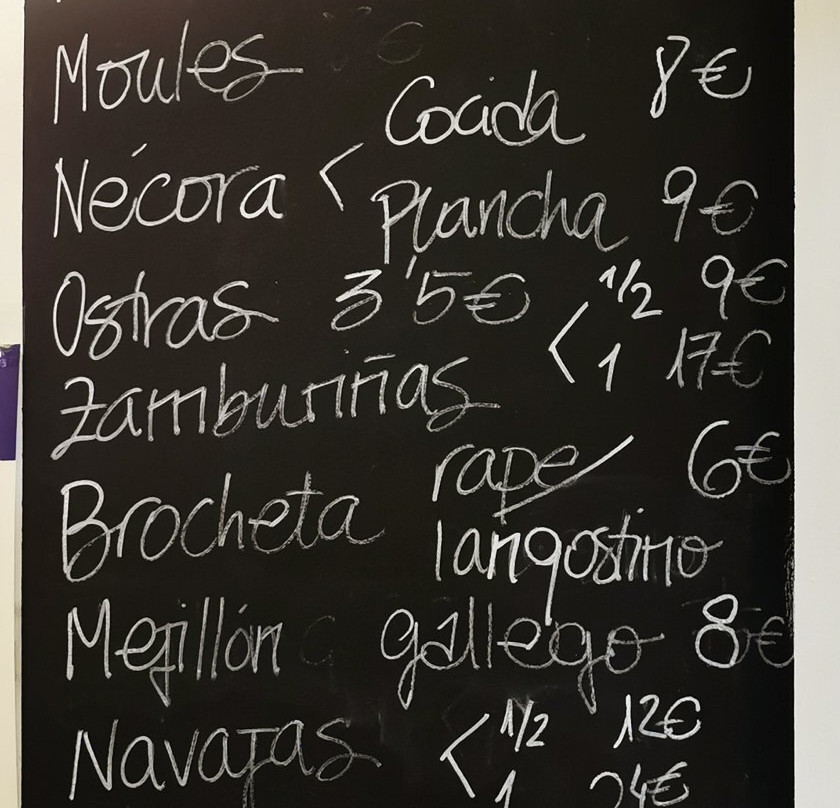 Moules 8€
Cocida
Nécora <
Plancha 9€
Ostras 3'5€
< 1/2 9€
1 17€
Zamburiñas
Brocheta rape/ 6€
langostino
Mejillón gallego 8€
Navajas < 1/2 12€
1 24€